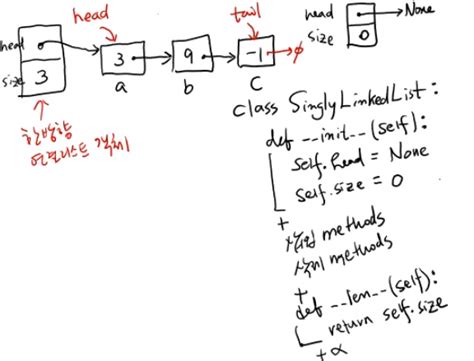 head
tail
head
None
size
0
head
size
3
3
9
-1
ø
a
b
c
한방향
연결리스트 객체
class SinglyLinkedList:
def __init__(self):
self.head = None
self.size = 0
+
삽입 methods
삭제 methods
+
def __len__(self):
return self.size
+α